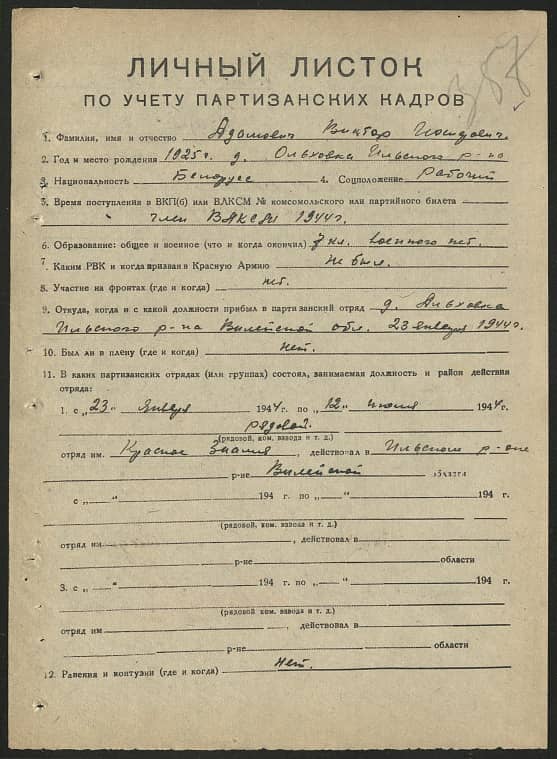 ЛИЧНЫЙ ЛИСТОК
ПО УЧЕТУ ПАРТИЗАНСКИХ КАДРОВ
1. Фамилия, имя и отчество Адамович Виктор Иосифович
2. Год и место рождения 1925 г. д. Ольховка Ильского р-на
3. Национальность Белорусс 4. Соцположение Рабочий
5. Время поступления в ВКП(б) или ВЛКСМ № комсомольского или партийного билета
член ВЛКСМ 1944 г.
6. Образование: общее и военное (что и когда окончил) 7 кл. военного нет.
7. Каким РВК и когда призван в Красную Армию Не был.
8. Участие на фронтах (где и когда) нет.
9. Откуда, когда и с какой должности прибыл в партизанский отряд д. Альховка
Ильского р-на Вилейской обл. 23 января 1944 г.
10. Был ли в плену (где и когда) Нет.
11. В каких партизанских отрядах (или группах) состоял, занимаемая должность и район действия
отряда:
1. с „23" января 1944 г. по „12" июля 1944 г.
рядовой.
(рядовой, ком. взвода и т. д.)
отряд им. Красное Знамя, действовал в Ильском р-оне
р-не Вилейской области
с „ " 194 г. по „ " 194 г.
(рядовой, ком. взвода и т. д.)
отряд им. , действовал в
р-не области
3. с „ " 194 г. по „ " 194 г.
(рядовой, ком. взвода и т. д.)
отряд им , действовал в
р-не области
12. Ранения и контузии (где и когда) Нет.